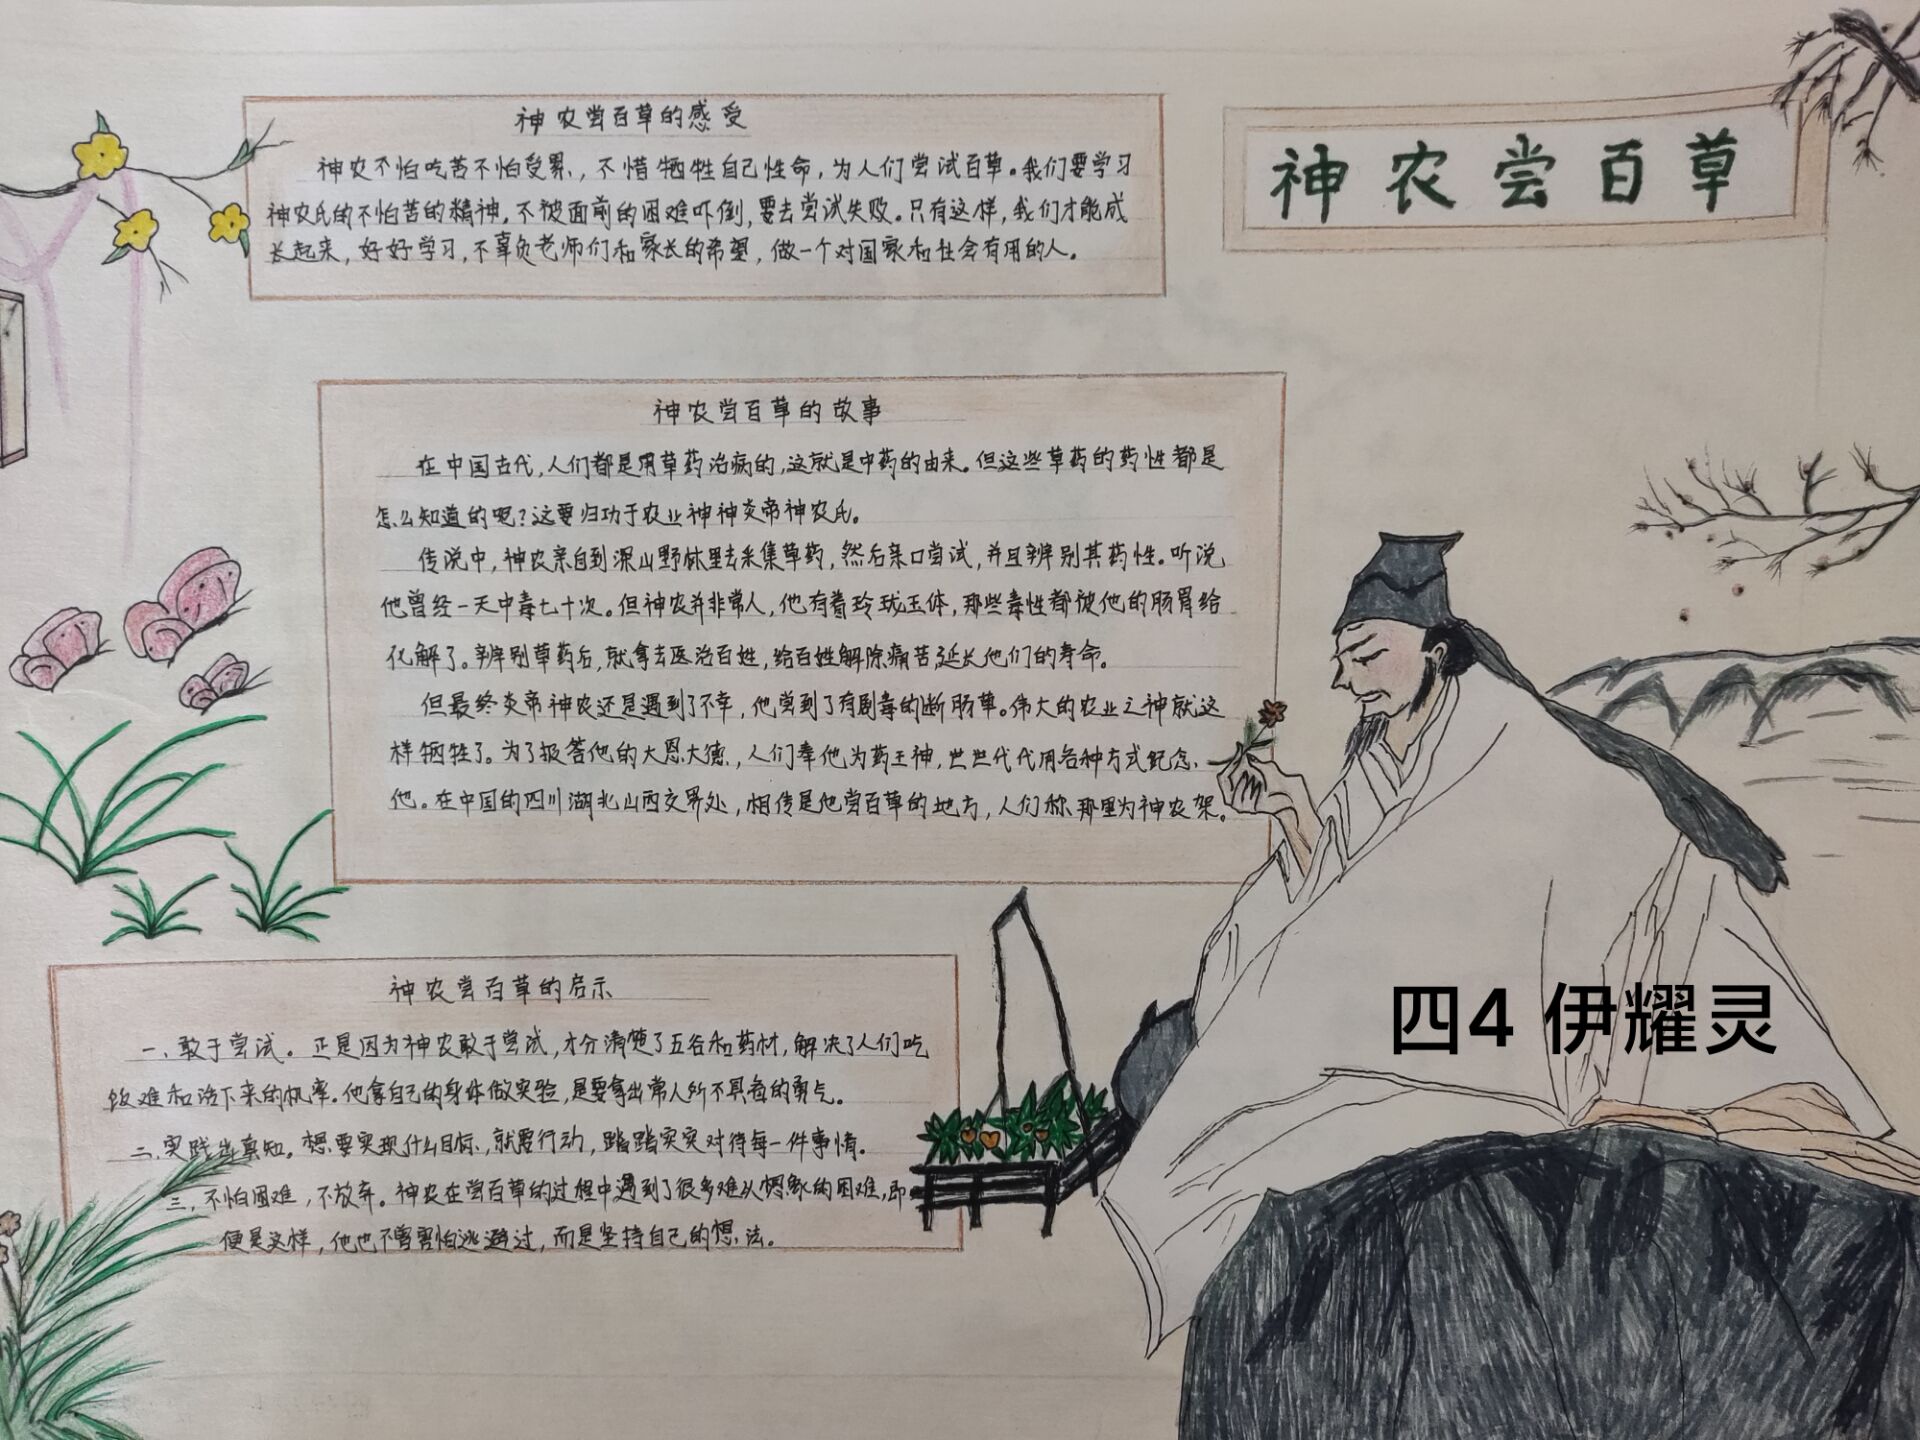 神农尝百草
神农尝百草的感受
神农不怕吃苦不怕受累，不惜牺牲自己性命，为人们尝试百草。我们要学习
神农氏的不怕苦的精神。不被面前的困难吓倒，要去尝试失败。只有这样，我们才能成
长起来，好好学习，不辜负老师们和家长的希望，做一个对国家和社会有用的人。
神农尝百草的故事
在中国古代，人们都是用草药治病的，这就是中药的由来。但这些草药的药性都是
怎么知道的呢？这要归功于农业神神炎帝神农氏。
传说中，神农亲自到深山野林里去采集草药，然后亲口尝试，并且辨别其药性。听说
他曾经一天中毒七十次。但神农并非常人，他有着玲珑玉体，那些毒性都被他的肠胃给
化解了。辨别草药后，就拿去医治百姓，给百姓解除痛苦，延长他们的寿命。
但最终炎帝神农还是遇到了不幸，他尝到了有剧毒的断肠草。伟大的农业之神就这
样牺牲了。为了报答他的大恩大德，人们奉他为药王神，世世代代用各种方式纪念
他。在中国的四川湖北山西交界处，相传是他尝百草的地方，人们称那里为神农架。
神农尝百草的启示
一、敢于尝试。正是因为神农敢于尝试，才分清楚了五谷和药材，解决了人们吃
饭难和活下来的机率。他拿自己的身体做实验，是要拿出常人所不具备的勇气。
二、实践出真知。想要实现什么目标，就要行动，踏踏实实对待每一件事情。
三、不怕困难，不放弃。神农在尝百草的过程中遇到了很多难以想象的困难，即
便是这样，他也不曾害怕逃避过，而是坚持自己的想法。
四4 伊耀灵